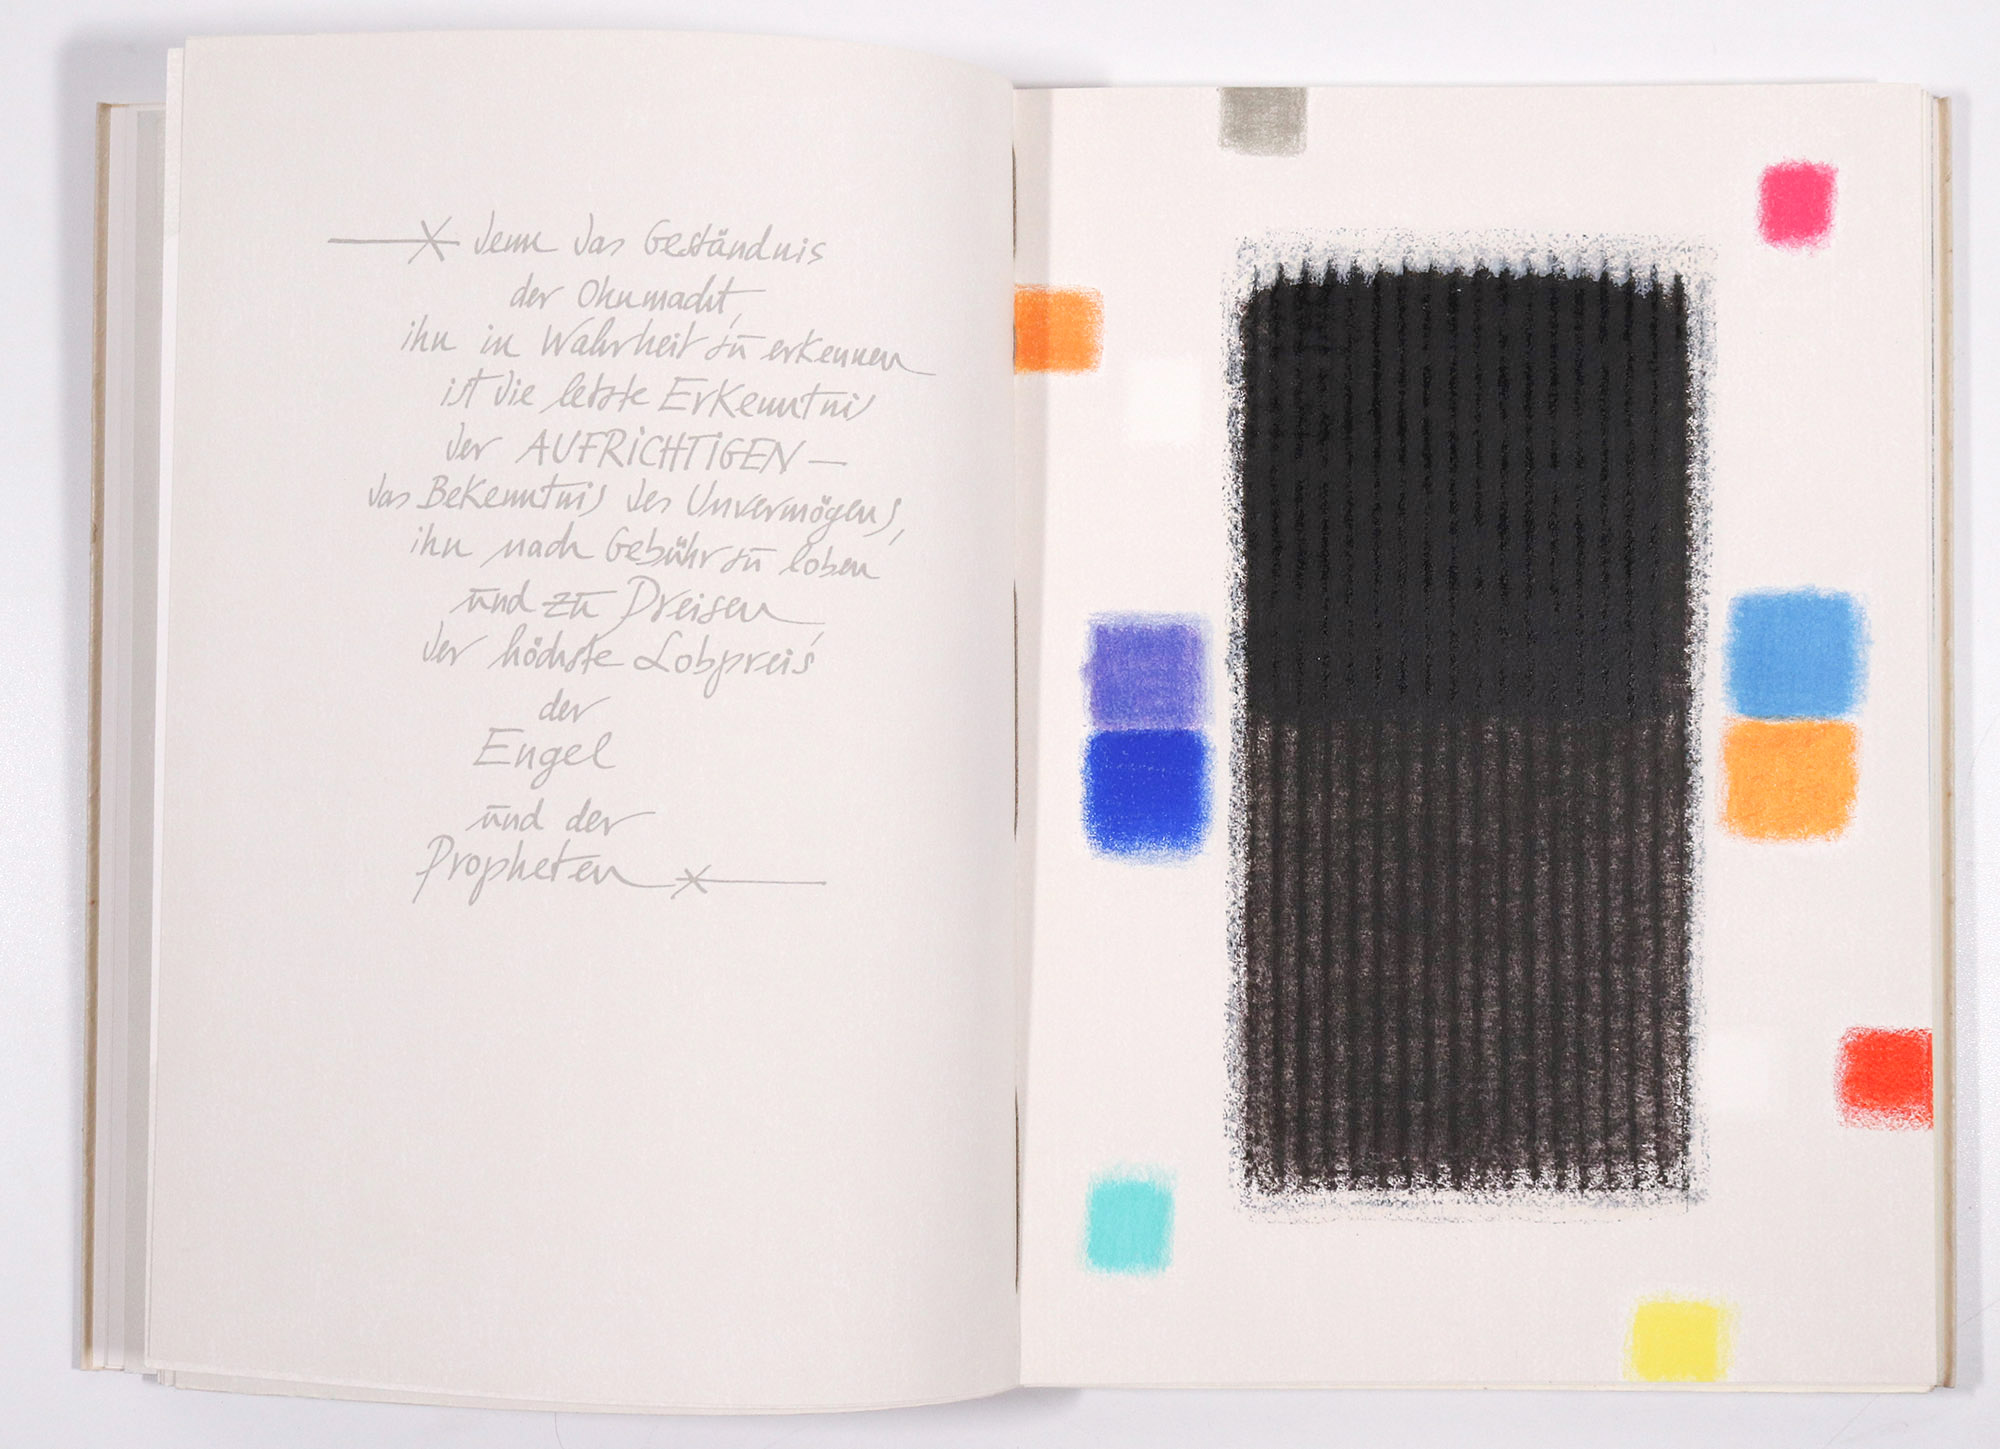 denn das Geständnis
der Ohnmacht,
ihn in Wahrheit zu erkennen
ist die letzte Erkenntnis
der AUFRICHTIGEN —
das Bekenntnis des Unvermögens,
ihn nach Gebühr zu loben
und zu Preisen,
der höchste Lobpreis
der
Engel
und der
Propheten